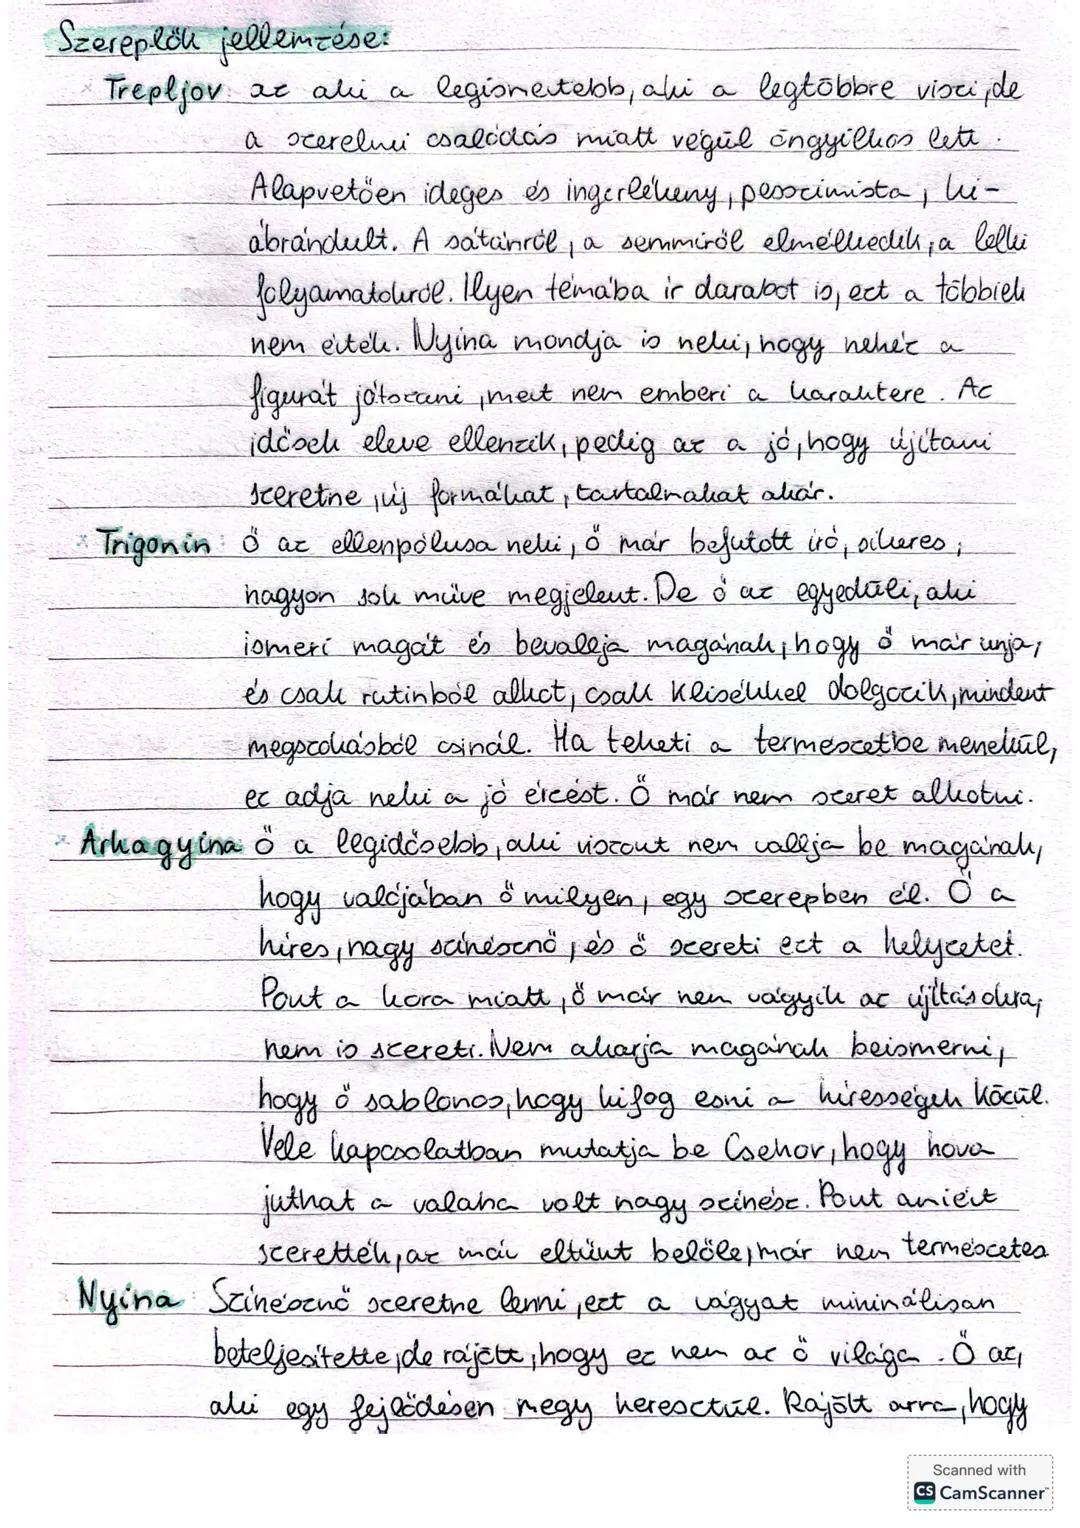 Szereplők jellemzése:
Trepljov: az aki a legismertebb, aki a legtöbbre viszi, de
a szerelmi csalódás miatt végül öngyilkos lett.
Alapvetően ideges és ingerlékeny, pesszimista, ki-
ábrándult. A sátánról, a semmiről elmélkedik, a lelki
folyamatokról. Ilyen témába ír darabot is, ezt a többiek
nem érték. Nyina mondja is neki, hogy nehéz a
figurát játszani, mert nem emberi a karaktere. Az
idősek eleve ellenzik, pedig az a jó, hogy újítani
szeretne, új formákat, tartalmakat akár.
Trigorin: Ő az ellenpólusa neki, ő már befutott író, sikeres,
nagyon sok műve megjelent. De ő az egyedüli, aki
ismeri magát és bevallja magának, hogy ő már unja,
és csak rutinból alkot, csak klisékkel dolgozik, mindent
megszokásból csinál. Ha teheti a természetbe menekül,
ez adja neki a jó érzést. Ő már nem szeret alkotni.
Arkagyina: Ő a legidősebb, aki viszont nem vallja be magának,
hogy valójában ő milyen, egy szerepben él. Ő a
híres, nagy színésznő, és ő szereti ezt a helyzetet.
Pont a kora miatt, ő már nem vágyik az újításokra,
nem is szereti. Nem akarja magának beismerni,
hogy ő sablonos, hogy kifog esni a hírességek közül.
Vele kapcsolatban mutatja be Csehov, hogy hova
juthat a valaha volt nagy színész. Pont amiért
szerették, az már eltűnt belőle, már nem természetes
Nyina: Színésznő szeretne lenni, ezt a vágyat minimálisan
beteljesítette, de rájött, hogy ez nem az ő világa. Ő az,
aki egy fejlődésen megy keresztül. Rájött arra, hogy
Scanned with
CS CamScanner